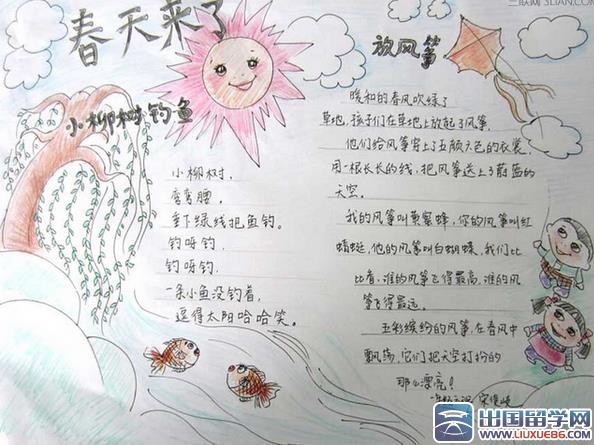 三联网 3LIAN.COM
春天来了
小柳树钓鱼
小柳树，
弯弯腰，
垂下绿线把鱼钓。
钓呀钓，
钓呀钓，
一条小鱼没钓着，
逗得太阳哈哈笑。
放风筝
暖和的春风吹绿了
草地，孩子们在草地上放起了风筝，
他们给风筝穿上了五颜六色的衣裳，
用一根长长的线，把风筝送上了蔚蓝的
天空。
我的风筝叫黄蜜蜂，你的风筝叫红
蜻蜓，他的风筝叫白蝴蝶，我们比
比看，谁的风筝飞得最高，谁的风
筝飞得最远。
五彩缤纷的风筝，在春风中
飘荡，它们把天空打扮的
那么漂亮！
出国留学网
WWW.LIUXUE86.COM